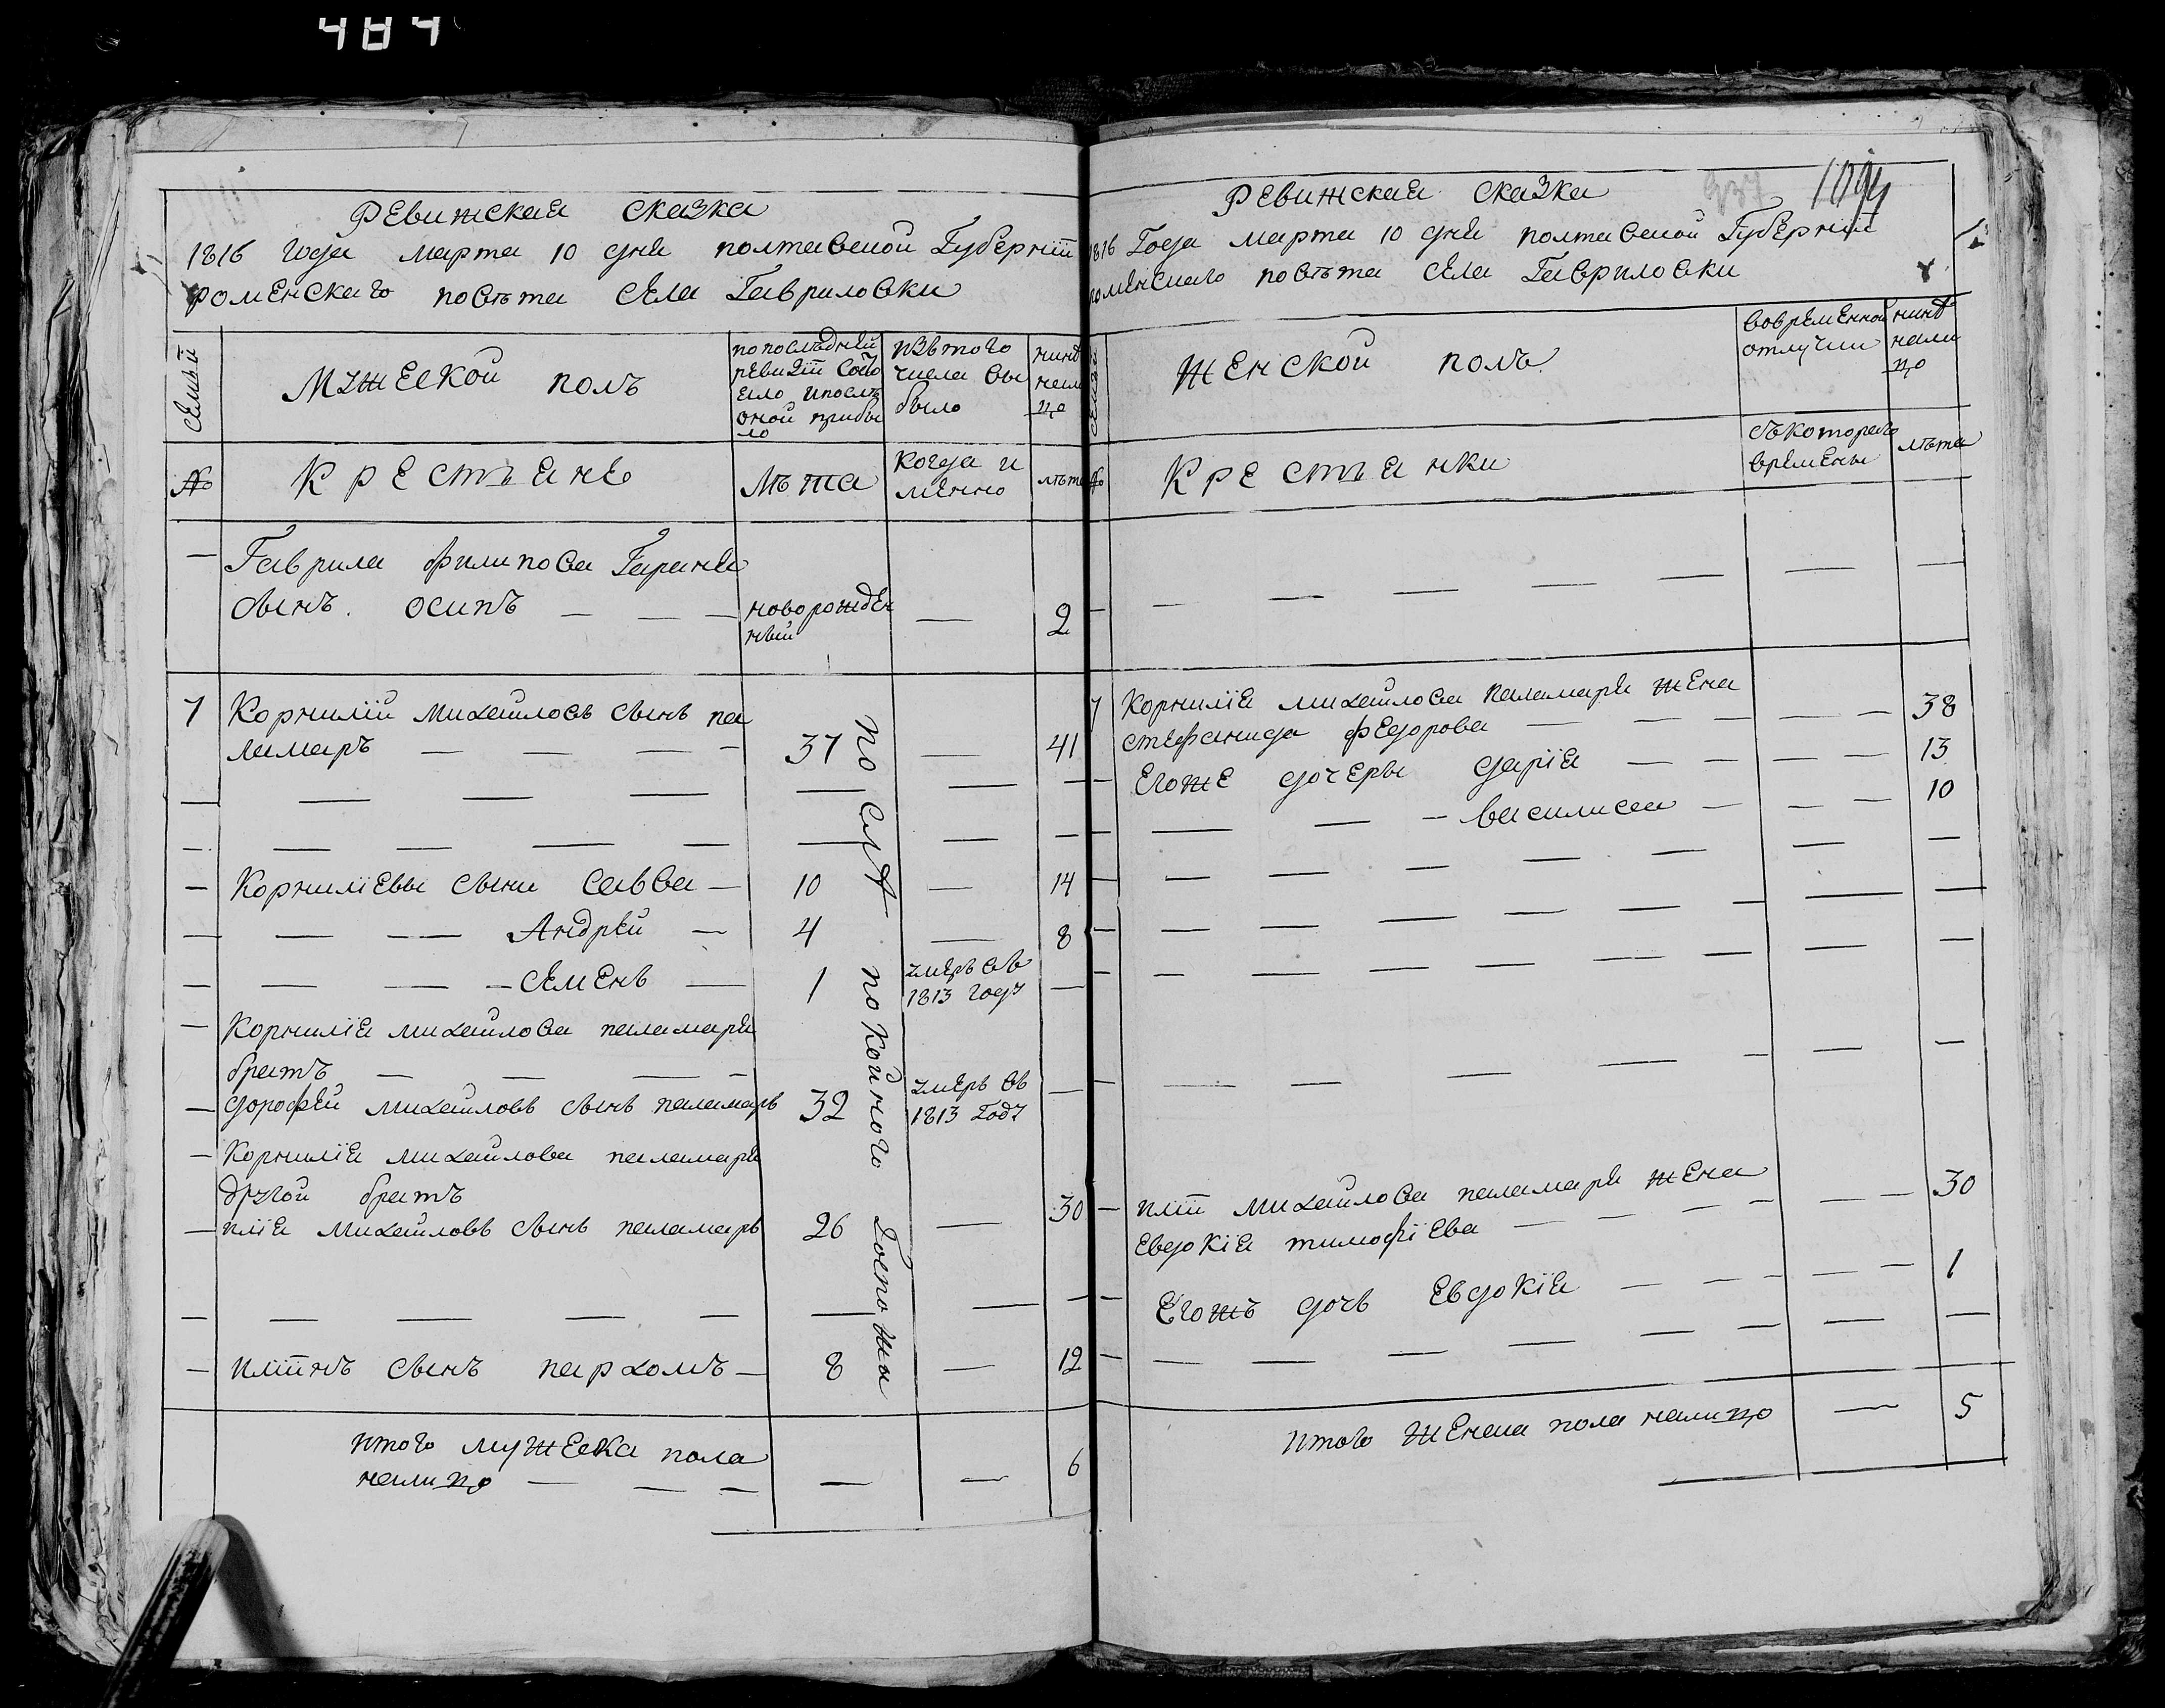 484
Ревижская сказка
1816 года марта 10 дня полтавской Губерніи
роменскаго повѣта села Гавриловки
семьи
Мужеской полъ
по послѣдней
ревизіи состо
яло и послѣ
оной прибы
ло
изъ того
числа вы
было
нинѣ
нали
цо
№
Крестьяне
Лѣта
когда и
менно
лѣта
— Гаврила филипова Гараня
сынъ осипъ — — — новорожден — 2
ный
7 Корнилій михайловъ сынъ па
ламаръ — — — — 37 — 41
— — — — — — —
— — — — — — — —
— Корниліевы сыни савва — 10 — 14
— — — Андрей — 4 — 8
— — — — семенъ — 1 умеръ въ —
1813 году
— Корнилія михайлова паламаря
братъ — — — —
— дорофей михайловъ сынъ паламаръ 32 умеръ въ —
1813 Году
— Корнилія михайлова паламаря
другой братъ
— илія михайловъ сынъ паламаръ 26 — 30
— — — — — — — —
— иліинъ сынъ пархомъ — 8 — 12
по слѣ покойного Госпожы
итого мужеска пола
налицо — — — — — 6
1094
937
Ревижская сказка
1816 Года марта 10 дня полтавской Губерніи
роменскаго повѣта села Гавриловки
семьи
Женской полъ
вовременной
отлучки
нинѣ
нали
цо
№
Крестьянки
съ котораго
времены
лѣта
— — — — — — — —
7 Корнилія михайлова паламаря жена
стефанида федорова — — — — — 38
— Егоже дочеры дарія — — — — 13
— — — — василиса — — — 10
— — — — — — — —
— — — — — — — —
— — — — — — — —
— — — — — — — —
— иліи михайлова паламаря жена
Евдокія тимофіева — — — — — — 30
— Егожъ дочъ Евдокія — — — — — 1
— — — — — — — —
итого женска пола налицо — 5